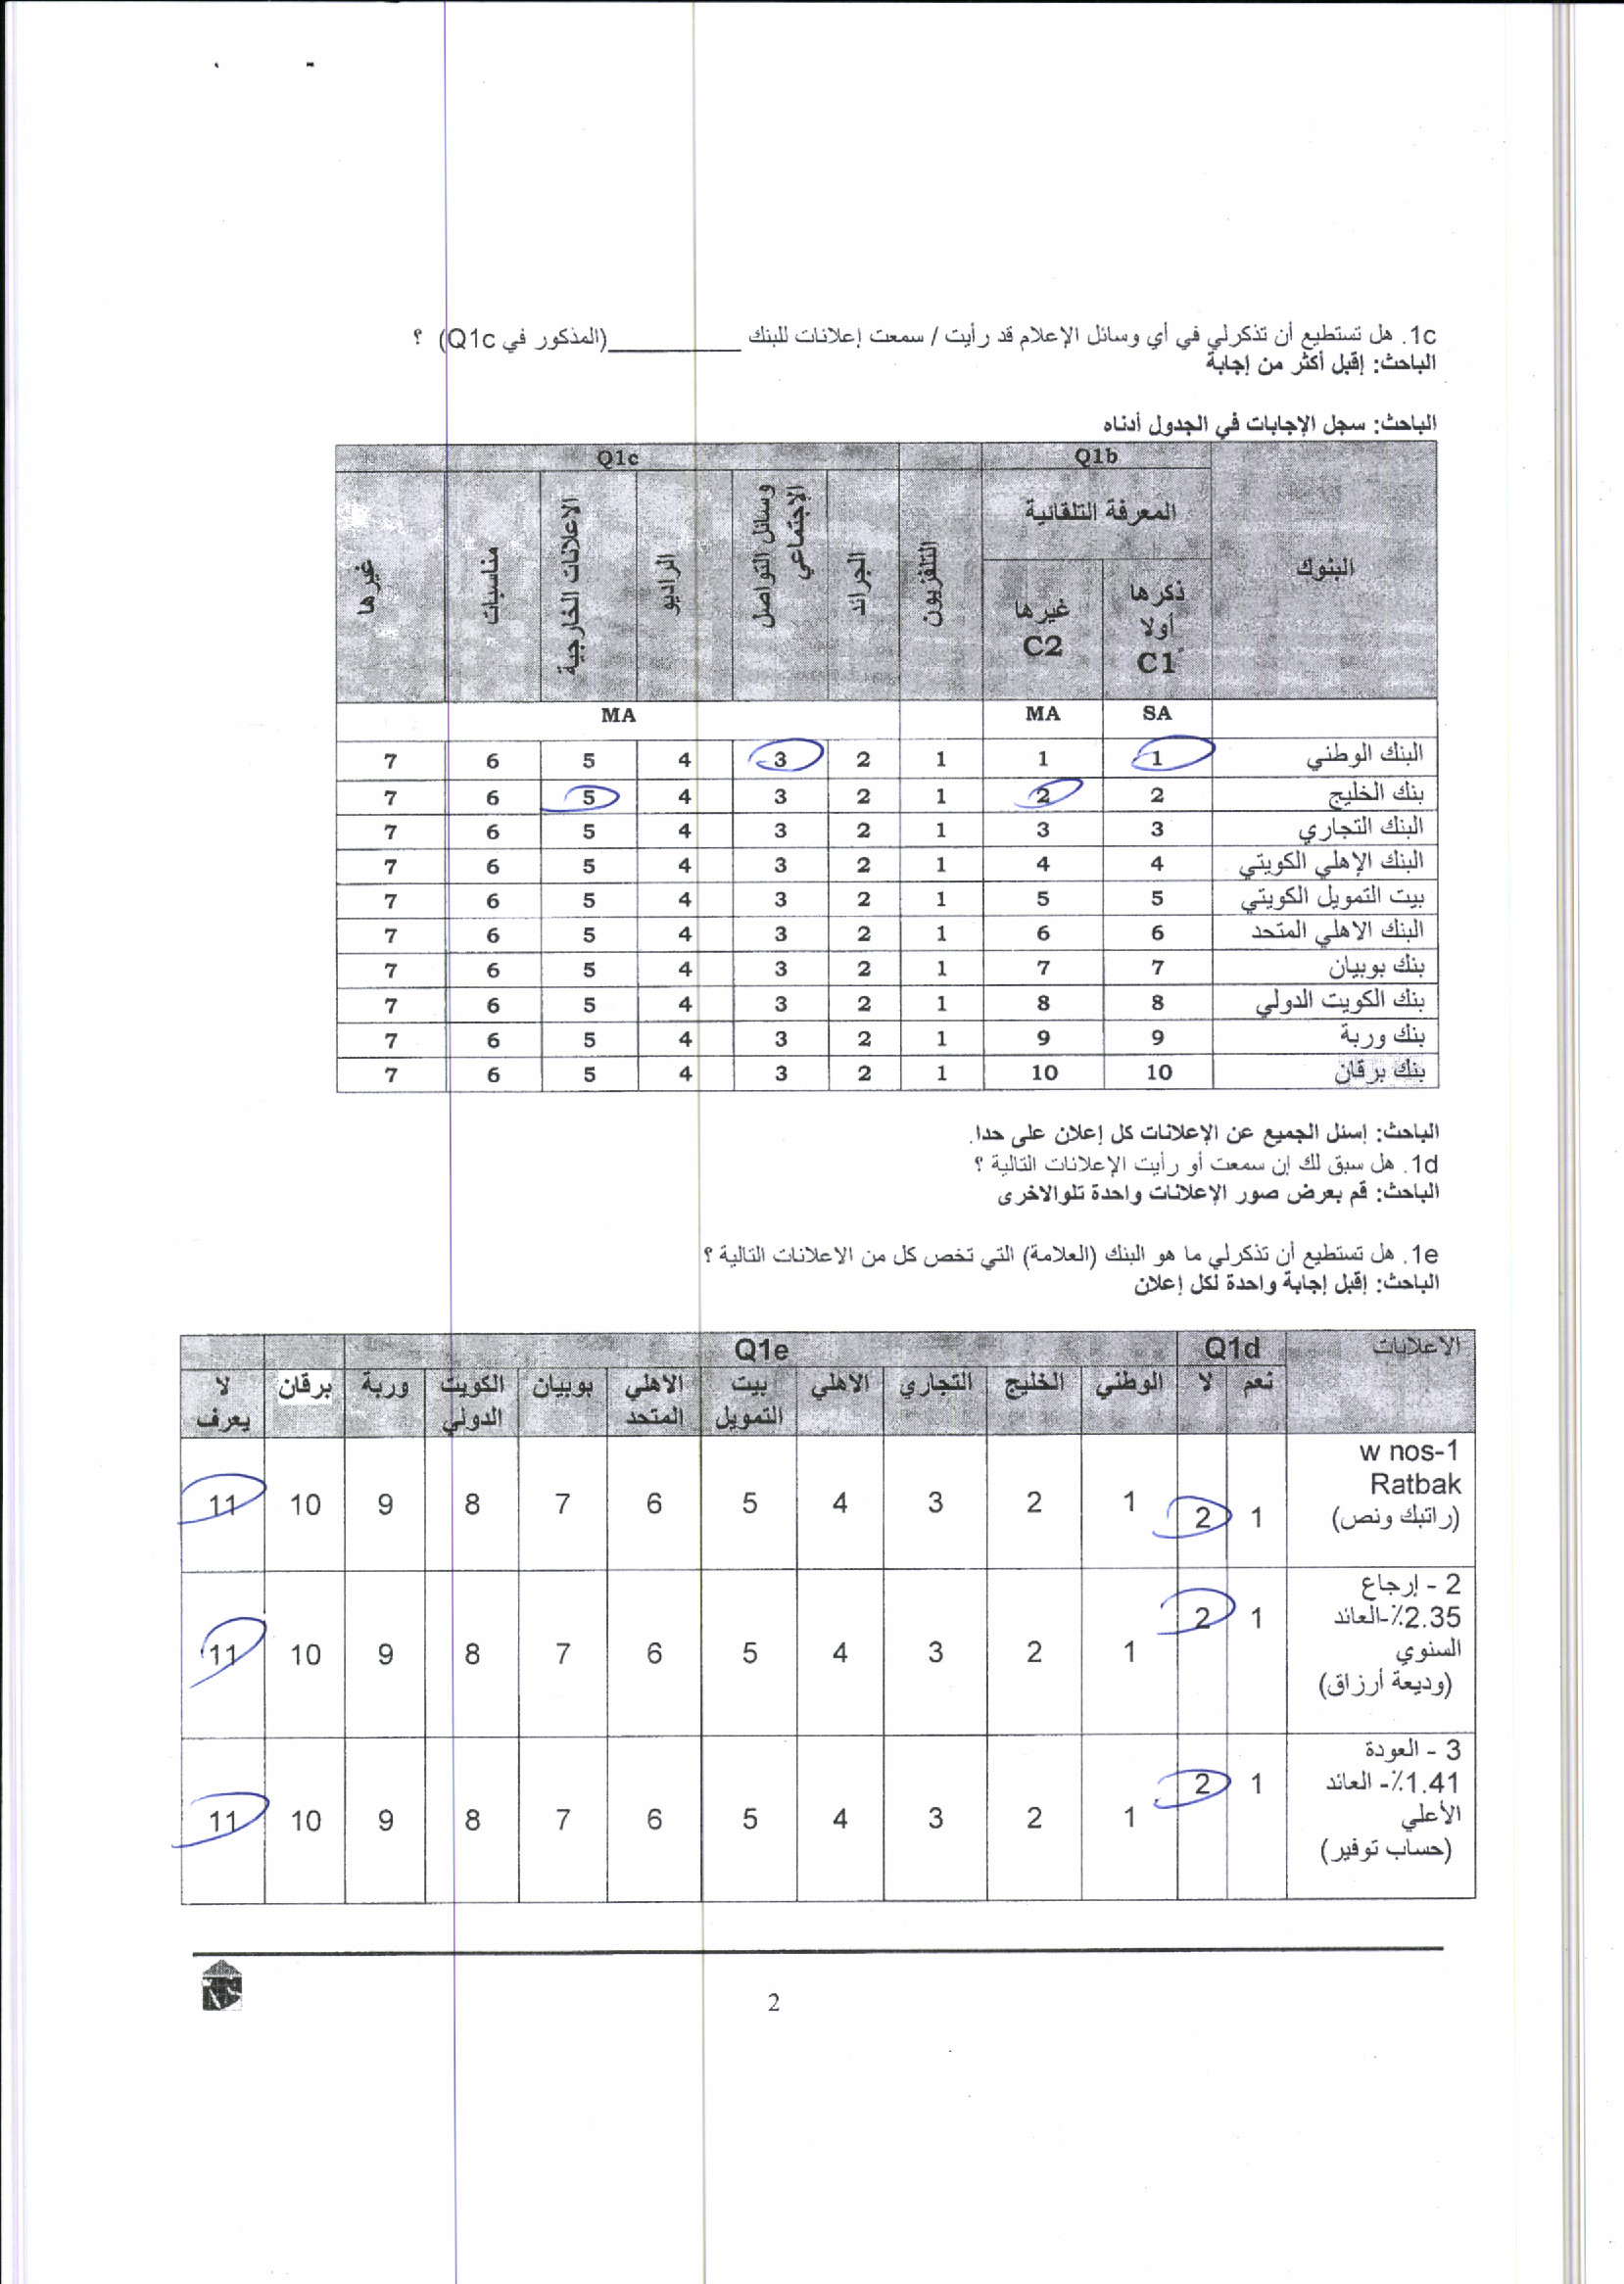 1c. هل تستطيع أن تذكرلي في أي وسائل الإعلام قد رأيت / سمعت إعلانات للبنك ___________(المذكور في Q1c) ؟
الباحث: إقبل أكثر من إجابة
الباحث: سجل الإجابات في الجدول أدناه
Q1b Q1c
البنوك المعرفة التلقائية التلفزيون الجرائد وسائل التواصل الإجتماعي الراديو الاعلانات الخارجية مناسبات غيرها
ذكرها أولا C1 غيرها C2
SA MA MA
البنك الوطني 1 1 1 2 3 4 5 6 7
بنك الخليج 2 2 1 2 3 4 5 6 7
البنك التجاري 3 3 1 2 3 4 5 6 7
البنك الإهلي الكويتي 4 4 1 2 3 4 5 6 7
بيت التمويل الكويتي 5 5 1 2 3 4 5 6 7
البنك الاهلي المتحد 6 6 1 2 3 4 5 6 7
بنك بوبيان 7 7 1 2 3 4 5 6 7
بنك الكويت الدولي 8 8 1 2 3 4 5 6 7
بنك وربة 9 9 1 2 3 4 5 6 7
بنك برقان 10 10 1 2 3 4 5 6 7
الباحث: إسئل الجميع عن الإعلانات كل إعلان على حدا.
1d. هل سبق لك إن سمعت أو رأيت الإعلانات التالية ؟
الباحث: قم بعرض صور الإعلانات واحدة تلوالاخرى
1e. هل تستطيع أن تذكرلي ما هو البنك (العلامة) التي تخص كل من الاعلانات التالية ؟
الباحث: إقبل إجابة واحدة لكل إعلان
الاعلانات Q1d Q1e
نعم لا الوطني الخليج التجاري الاهلي بيت التمويل الاهلي المتحد بوبيان الكويت الدولي وربة برقان لا يعرف
w nos-1
Ratbak
(راتبك ونص)
1 2 1 2 3 4 5 6 7 8 9 10 11
2 - إرجاع
2.35٪-العائد
السنوي
(وديعة أرزاق)
1 2 1 2 3 4 5 6 7 8 9 10 11
3 - العودة
1.41٪- العائد
الأعلي
(حساب توفير)
1 2 1 2 3 4 5 6 7 8 9 10 11
2